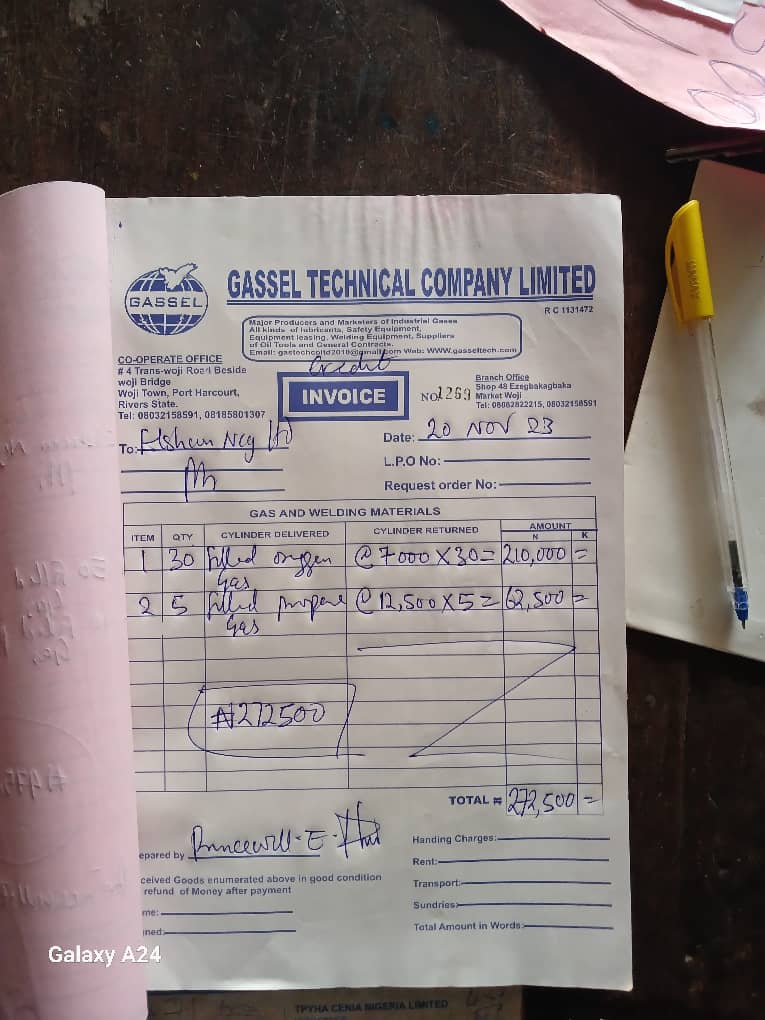 GASSEL
GASSEL TECHNICAL COMPANY LIMITED
R C 1131472
Major Producers and Marketers of Industrial Gases
All kinds of lubricants, Safety Equipment,
Equipment leasing, Welding Equipment, Suppliers
of Oil Tools and General Contracts.
Email: gastechcoltd2010@gmail.com Web: WWW.gasseltech.com
CO-OPERATE OFFICE
# 4 Trans-woji Road Beside
woji Bridge
Woji Town, Port Harcourt,
Rivers State.
Tel: 08032158591, 08185801307
Credit
INVOICE
NO 1269
Branch Office
Shop 48 Ezegbakagbaka
Market Woji
Tel: 08082822215, 08032158591
To:
Date: 20 NOV 23
L.P.O No:
Request order No:
GAS AND WELDING MATERIALS
ITEM QTY CYLINDER DELIVERED CYLINDER RETURNED AMOUNT
N K
1 30 filled oxygen @ 7000 X 30 = 210,000 =
Gas
2 5 filled propane @ 12,500 X 5 = 62,500 =
Gas
₦272500
TOTAL ₦ 272,500 =
epared by Princewill - E -
ceived Goods enumerated above in good condition
refund of Money after payment
me:
ned:
Handing Charges:
Rent:
Transport:
Sundries:
Total Amount in Words:
Galaxy A24
TPYHA CENIA NIGERIA LIMITED